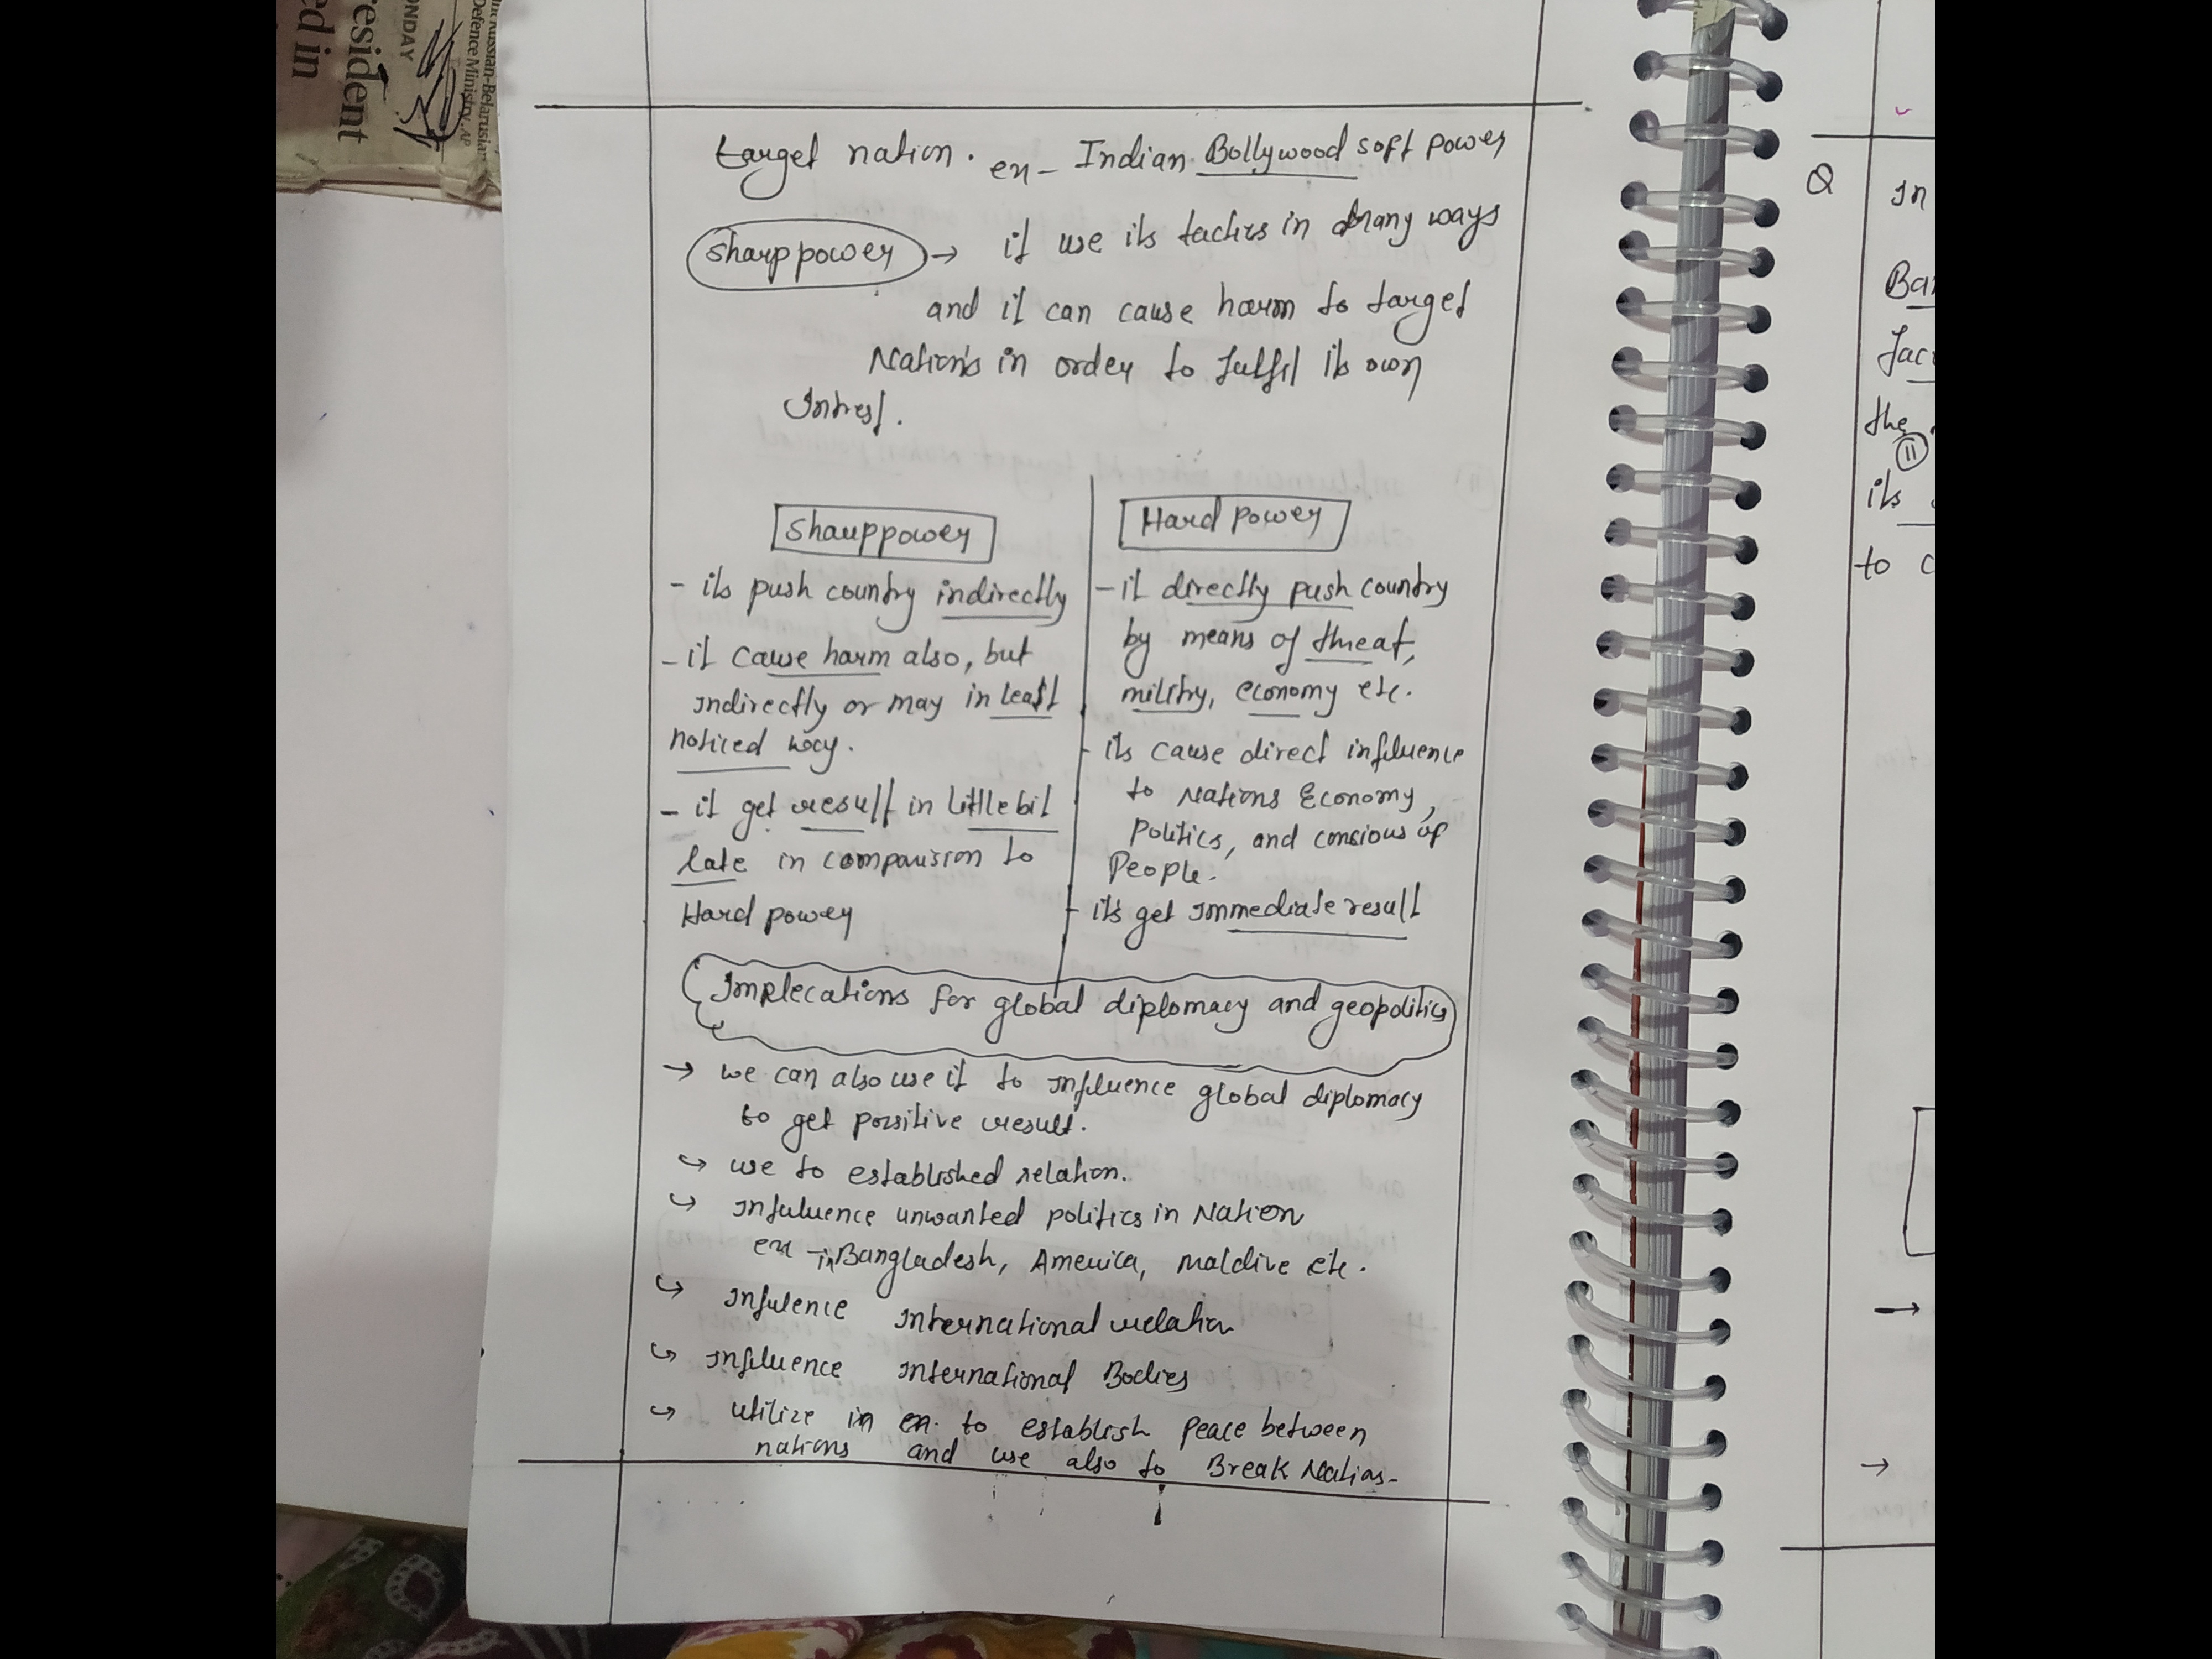 resident
ed in
ONDAY
Russian-Belarusian
Defence Ministry. AP
target nation. ex- Indian Bollywood soft power
Sharp power → it use its tactics in many ways
and it can cause harm to target
Nation's in order to fulfil its own
Intrest.
Sharp power
- its push country indirectly
- it cause harm also, but
indirectly or may in least
noticed way.
- it get result in little bit
late in comparision to
Hard power
Hard power
- it directly push country
by means of threat,
militry, economy etc.
- its cause direct influence
to Nations Economy,
Politics, and concious of
People.
- its get immediate result
Implecations for global diplomacy and geopolitics
→ we can also use it to influence global diplomacy
to get positive result.
↪ use to established relation.
↪ Infuluence unwanted politics in Nation
ex - in Bangladesh, America, maldive etc.
↪ Infulence International relation
↪ Influence International Bodies
↪ utilize in en. to establish peace between
nations and use also to Break Nations-
Q
In
Ban
fac
the
11
its
to c
→
→